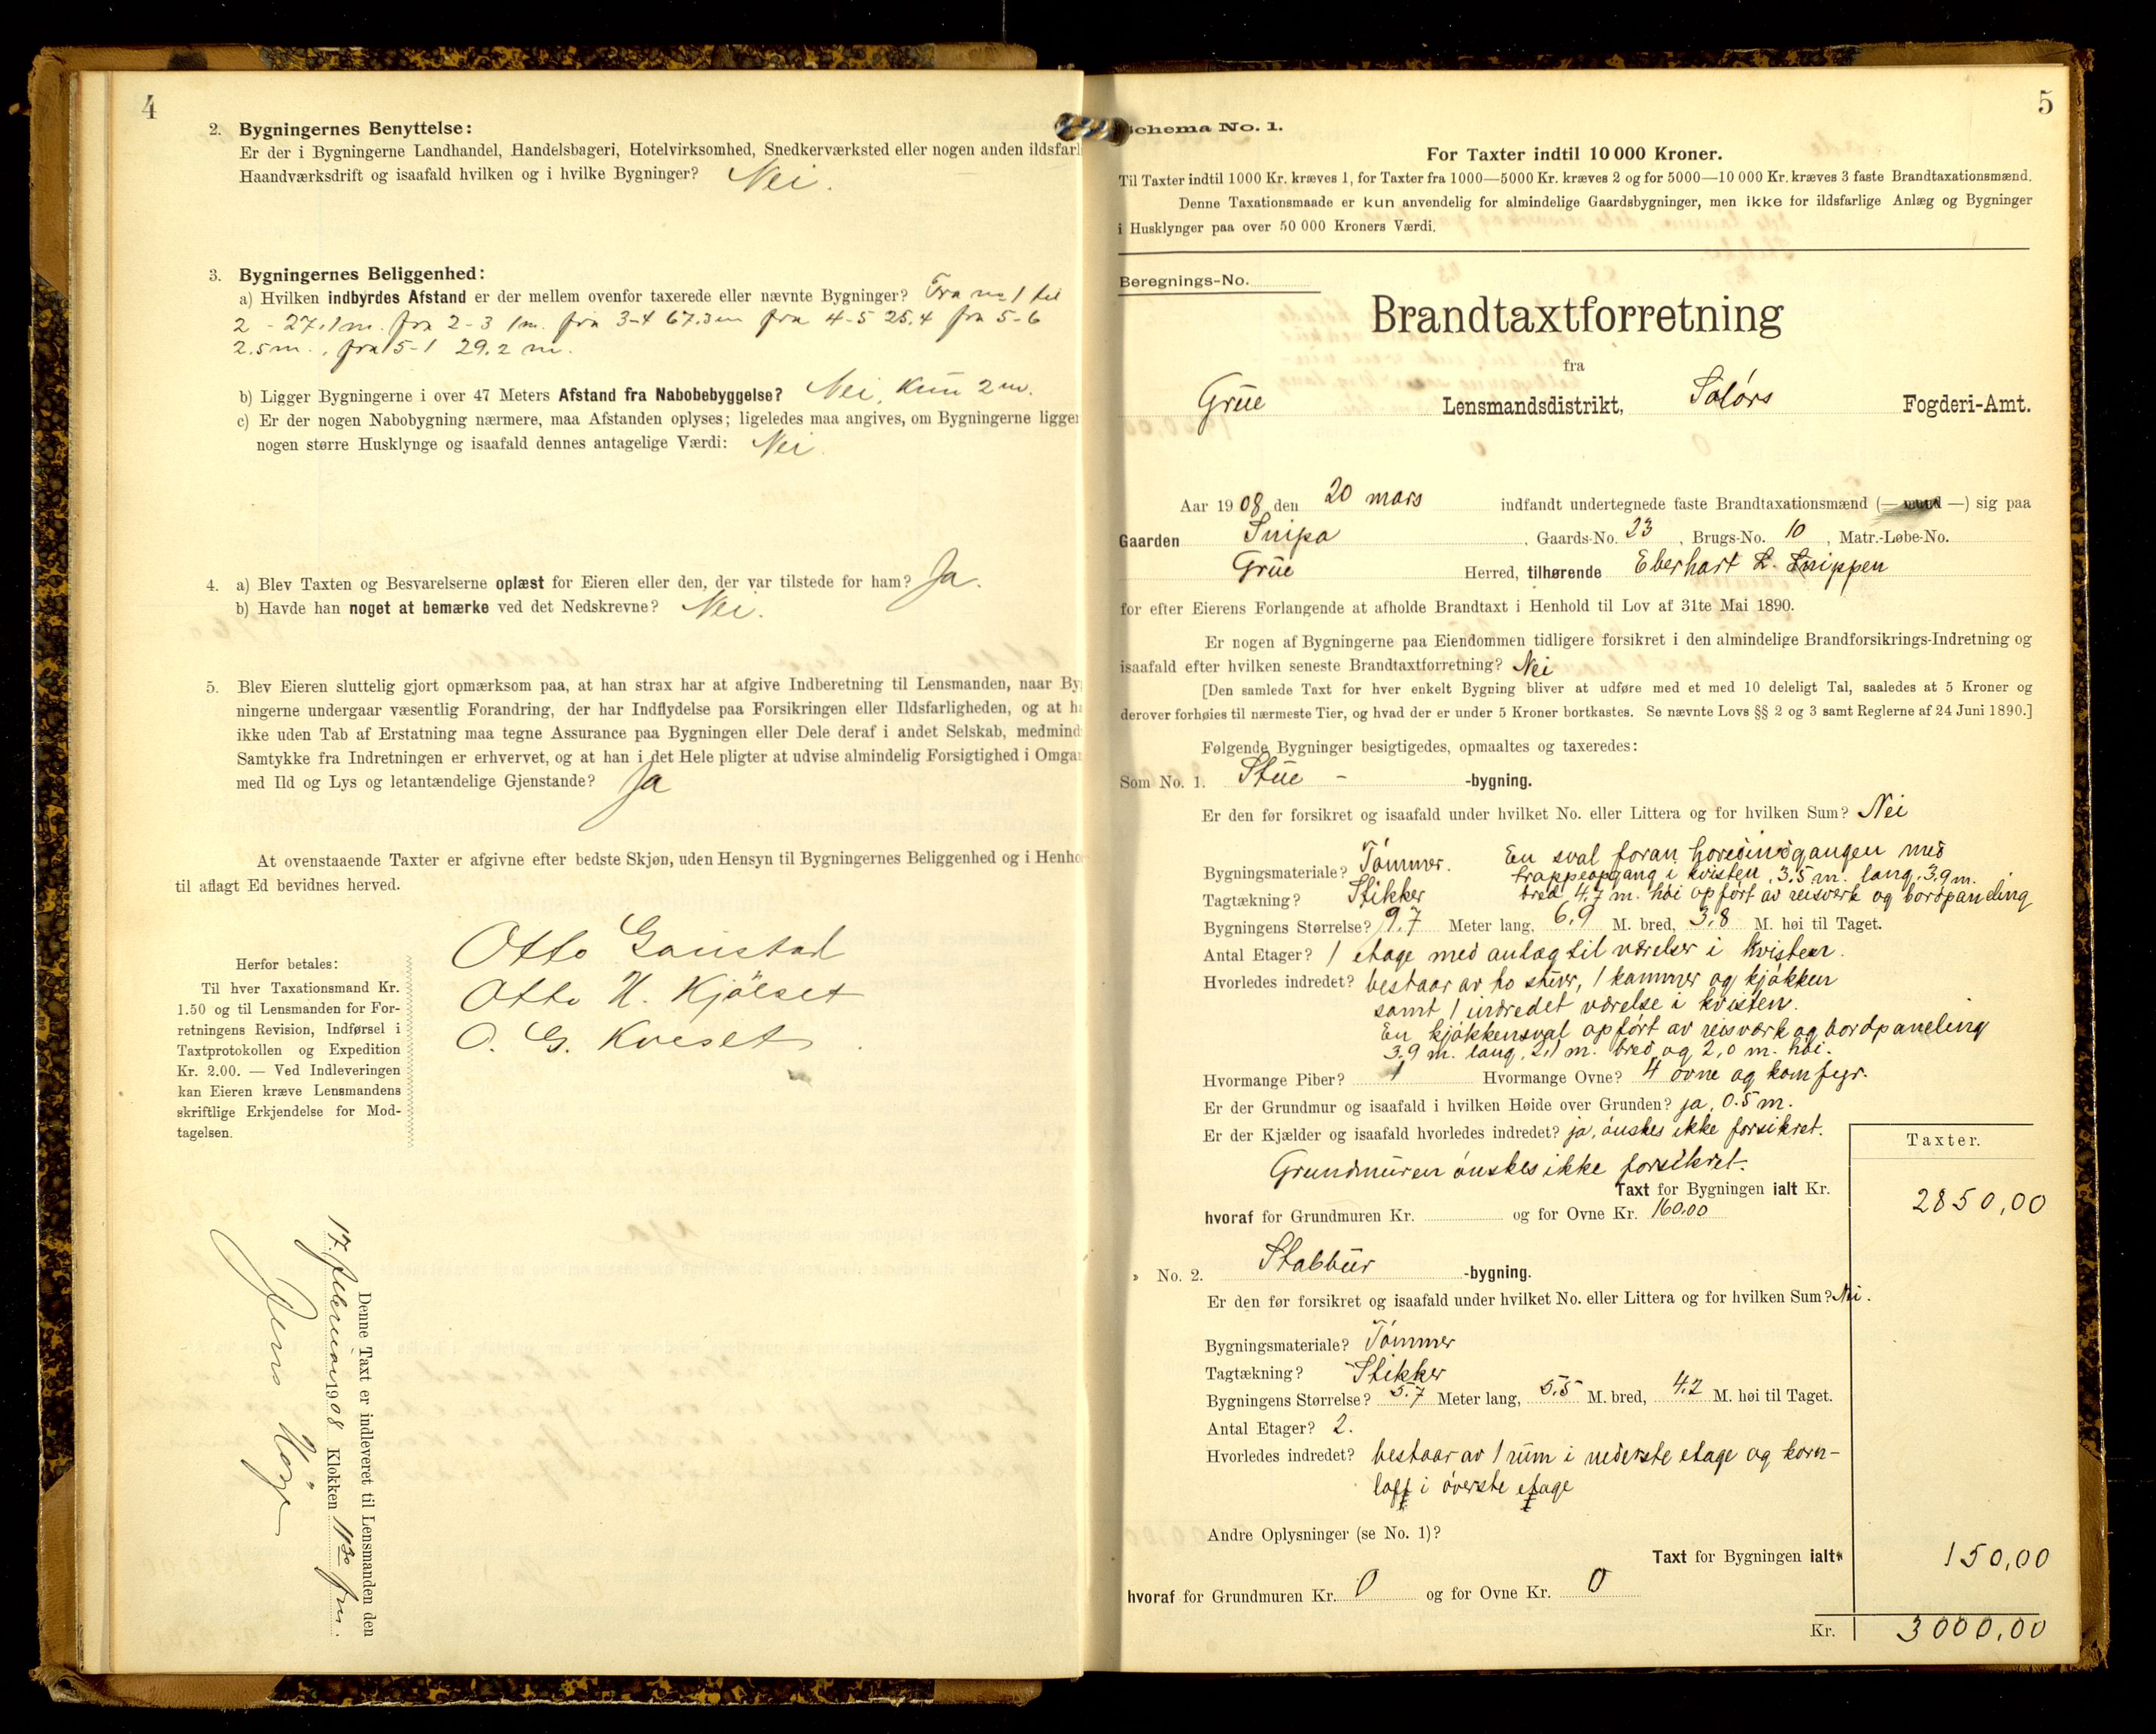 4
2. Bygningernes Benyttelse:
Er der i Bygningerne Landhandel, Handelsbageri, Hotelvirksomhed, Snedkerværksted eller nogen anden ildsfarl
Haandværksdrift og isaafald hvilken og i hvilke Bygninger? Nei.
3. Bygningernes Beliggenhed:
a) Hvilken indbyrdes Afstand er der mellem ovenfor taxerede eller nævnte Bygninger? Fra no 1 til
2 - 27.1 m. fra 2-3 1 m. fra 3-4 67.3 m fra 4-5 25.4 fra 5-6
2.5 m., fra 5-1 29.2 m.
b) Ligger Bygningerne i over 47 Meters Afstand fra Nabobebyggelse? Nei, kun 2 m.
c) Er der nogen Nabobygning nærmere, maa Afstanden oplyses; ligeledes maa angives, om Bygningerne ligger
nogen større Husklynge og isaafald dennes antagelige Værdi: Nei.
4. a) Blev Taxten og Besvarelserne oplæst for Eieren eller den, der var tilstede for ham? Ja.
b) Havde han noget at bemærke ved det Nedskrevne? Nei.
5. Blev Eieren sluttelig gjort opmærksom paa, at han strax har at afgive Indberetning til Lensmanden, naar By
ningerne undergaar væsentlig Forandring, der har Indflydelse paa Forsikringen eller Ildsfarligheden, og at h
ikke uden Tab af Erstatning maa tegne Assurance paa Bygningen eller Dele deraf i andet Selskab, medmind
Samtykke fra Indretningen er erhvervet, og at han i det Hele pligter at udvise almindelig Forsigtighed i Omga
med Ild og Lys og letantændelige Gjenstande? Ja
At ovenstaaende Taxter er afgivne efter bedste Skjøn, uden Hensyn til Bygningernes Beliggenhed og i Henho
til aflagt Ed bevidnes herved.
Otto Gaustad
Otto H. Kjölset
O. G. Kveset
Herfor betales:
Til hver Taxationsmand Kr.
1.50 og til Lensmanden for For-
retningens Revision, Indførsel i
Taxtprotokollen og Expedition
Kr. 2.00. — Ved Indleveringen
kan Eieren kræve Lensmandens
skriftlige Erkjendelse for Mod-
tagelsen.
Denne Taxt er indleveret til Lensmanden den
17 februar 1908 Klokken 11 30 fm.
Jens
5
Schema No. 1.
For Taxter indtil 10 000 Kroner.
Til Taxter indtil 1000 Kr. kræves 1, for Taxter fra 1000—5000 Kr. kræves 2 og for 5000—10 000 Kr. kræves 3 faste Brandtaxationsmænd.
Denne Taxationsmaade er kun anvendelig for almindelige Gaardsbygninger, men ikke for ildsfarlige Anlæg og Bygninger
i Husklynger paa over 50 000 Kroners Værdi.
Beregnings-No.
Brandtaxtforretning
fra
Grue Lensmandsdistrikt, Solørs Fogderi-Amt.
Aar 1908 den 20 mars indfandt undertegnede faste Brandtaxationsmænd (— mand —) sig paa
Gaarden Snipa, Gaards-No. 23, Brugs-No. 10, Matr.-Løbe-No.
Grue Herred, tilhørende Eberhart L. Snippen
for efter Eierens Forlangende at afholde Brandtaxt i Henhold til Lov af 31te Mai 1890.
Er nogen af Bygningerne paa Eiendommen tidligere forsikret i den almindelige Brandforsikrings-Indretning og
isaafald efter hvilken seneste Brandtaxtforretning? Nei
[Den samlede Taxt for hver enkelt Bygning bliver at udføre med et med 10 deleligt Tal, saaledes at 5 Kroner og
derover forhøies til nærmeste Tier, og hvad der er under 5 Kroner bortkastes. Se nævnte Lovs §§ 2 og 3 samt Reglerne af 24 Juni 1890.]
Følgende Bygninger besigtigedes, opmaaltes og taxeredes:
Som No. 1. Stue - -bygning.
Er den før forsikret og isaafald under hvilket No. eller Littera og for hvilken Sum? Nei
Bygningsmateriale? Tømmer. En sval foran hovedindgangen med
trappeopgang i kvisten, 3.5 m. lang, 3.9 m.
Tagtækning? Stikker bred 4,7 m. høi opført av reisverk og bordpaneling
Bygningens Størrelse? 9.7 Meter lang, 6,9 M. bred, 3,8 M. høi til Taget.
Antal Etager? 1 etage med anlæg til værelser i kvisten.
Hvorledes indredet? bestaar av to stuer, 1 kammer og kjøkken
samt 1 indredet værelse i kvisten.
En kjøkkensval opført av reisværk og bordpaneling
3.9 m. lang, 2,1 m. bred og 2,0 m. høi.
Hvormange Piber? 1 Hvormange Ovne? 4 ovne og komfyr.
Er der Grundmur og isaafald i hvilken Høide over Grunden? ja, 0.5 m.
Er der Kjælder og isaafald hvorledes indredet? ja, ønskes ikke forsikret.
Grundmuren ønskes ikke forsikret.
Taxter.
Taxt for Bygningen ialt Kr. 2850,00
hvoraf for Grundmuren Kr. og for Ovne Kr. 160.00
» No. 2. Stabbur -bygning.
Er den før forsikret og isaafald under hvilket No. eller Littera og for hvilken Sum? Nei.
Bygningsmateriale? Tømmer
Tagtækning? Stikker
Bygningens Størrelse? 5.7 Meter lang, 5,5 M. bred, 4.2 M. høi til Taget.
Antal Etager? 2.
Hvorledes indredet? bestaar av 1 rum i nederste etage og korn-
loft i øverste etage
Andre Oplysninger (se No. 1)?
Taxt for Bygningen ialt 150,00
hvoraf for Grundmuren Kr. 0 og for Ovne Kr. 0
Kr. 3000,00